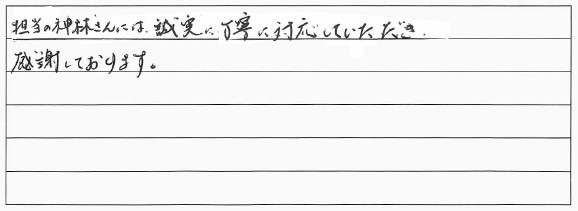 担当の神林さんには、誠実に丁寧に対応していただき、
感謝しております。